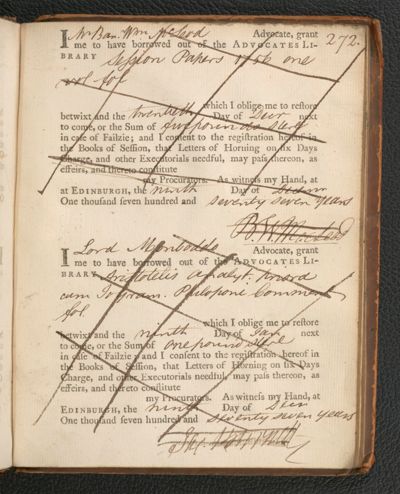 272.
I Mr Ban. Wm McLeod Advocate, grant
me to have borrowed out of the ADVOCATES LI-
BRARY Session Papers one
vol fol.
which I oblige me to restore
betwixt and the twentieth Day of Decr next
to come, or the Sum of pounds Sterl
in case of Failzie; and I consent to the registration hereof in
the Books of Session, that Letters of Horning on six Days
Charge, and other Executorials needful, may pass thereon, as
effeirs, and thereto constitute
my Procurators. As witness my Hand, at
at EDINBURGH, the ninth Day of Decemr
One thousand seven hundred and seventy seven years
I Lord Monboddo Advocate, grant
me to have borrowed out of the ADVOCATES LI-
BRARY Aristotelis analyt. priora
cum Joannis Philoponi Comment
fol.
which I oblige me to restore
betwixt and the ninth Day of Jany next
to come, or the Sum of one pound Sterl
in case of Failzie; and I consent to the registration hereof in
the Books of Session, that Letters of Horning on six Days
Charge, and other Executorials needful, may pass thereon, as
effeirs, and thereto constitute
my Procurators. As witness my Hand, at
EDINBURGH, the ninth Day of Decr
One thousand seven hundred and seventy seven years